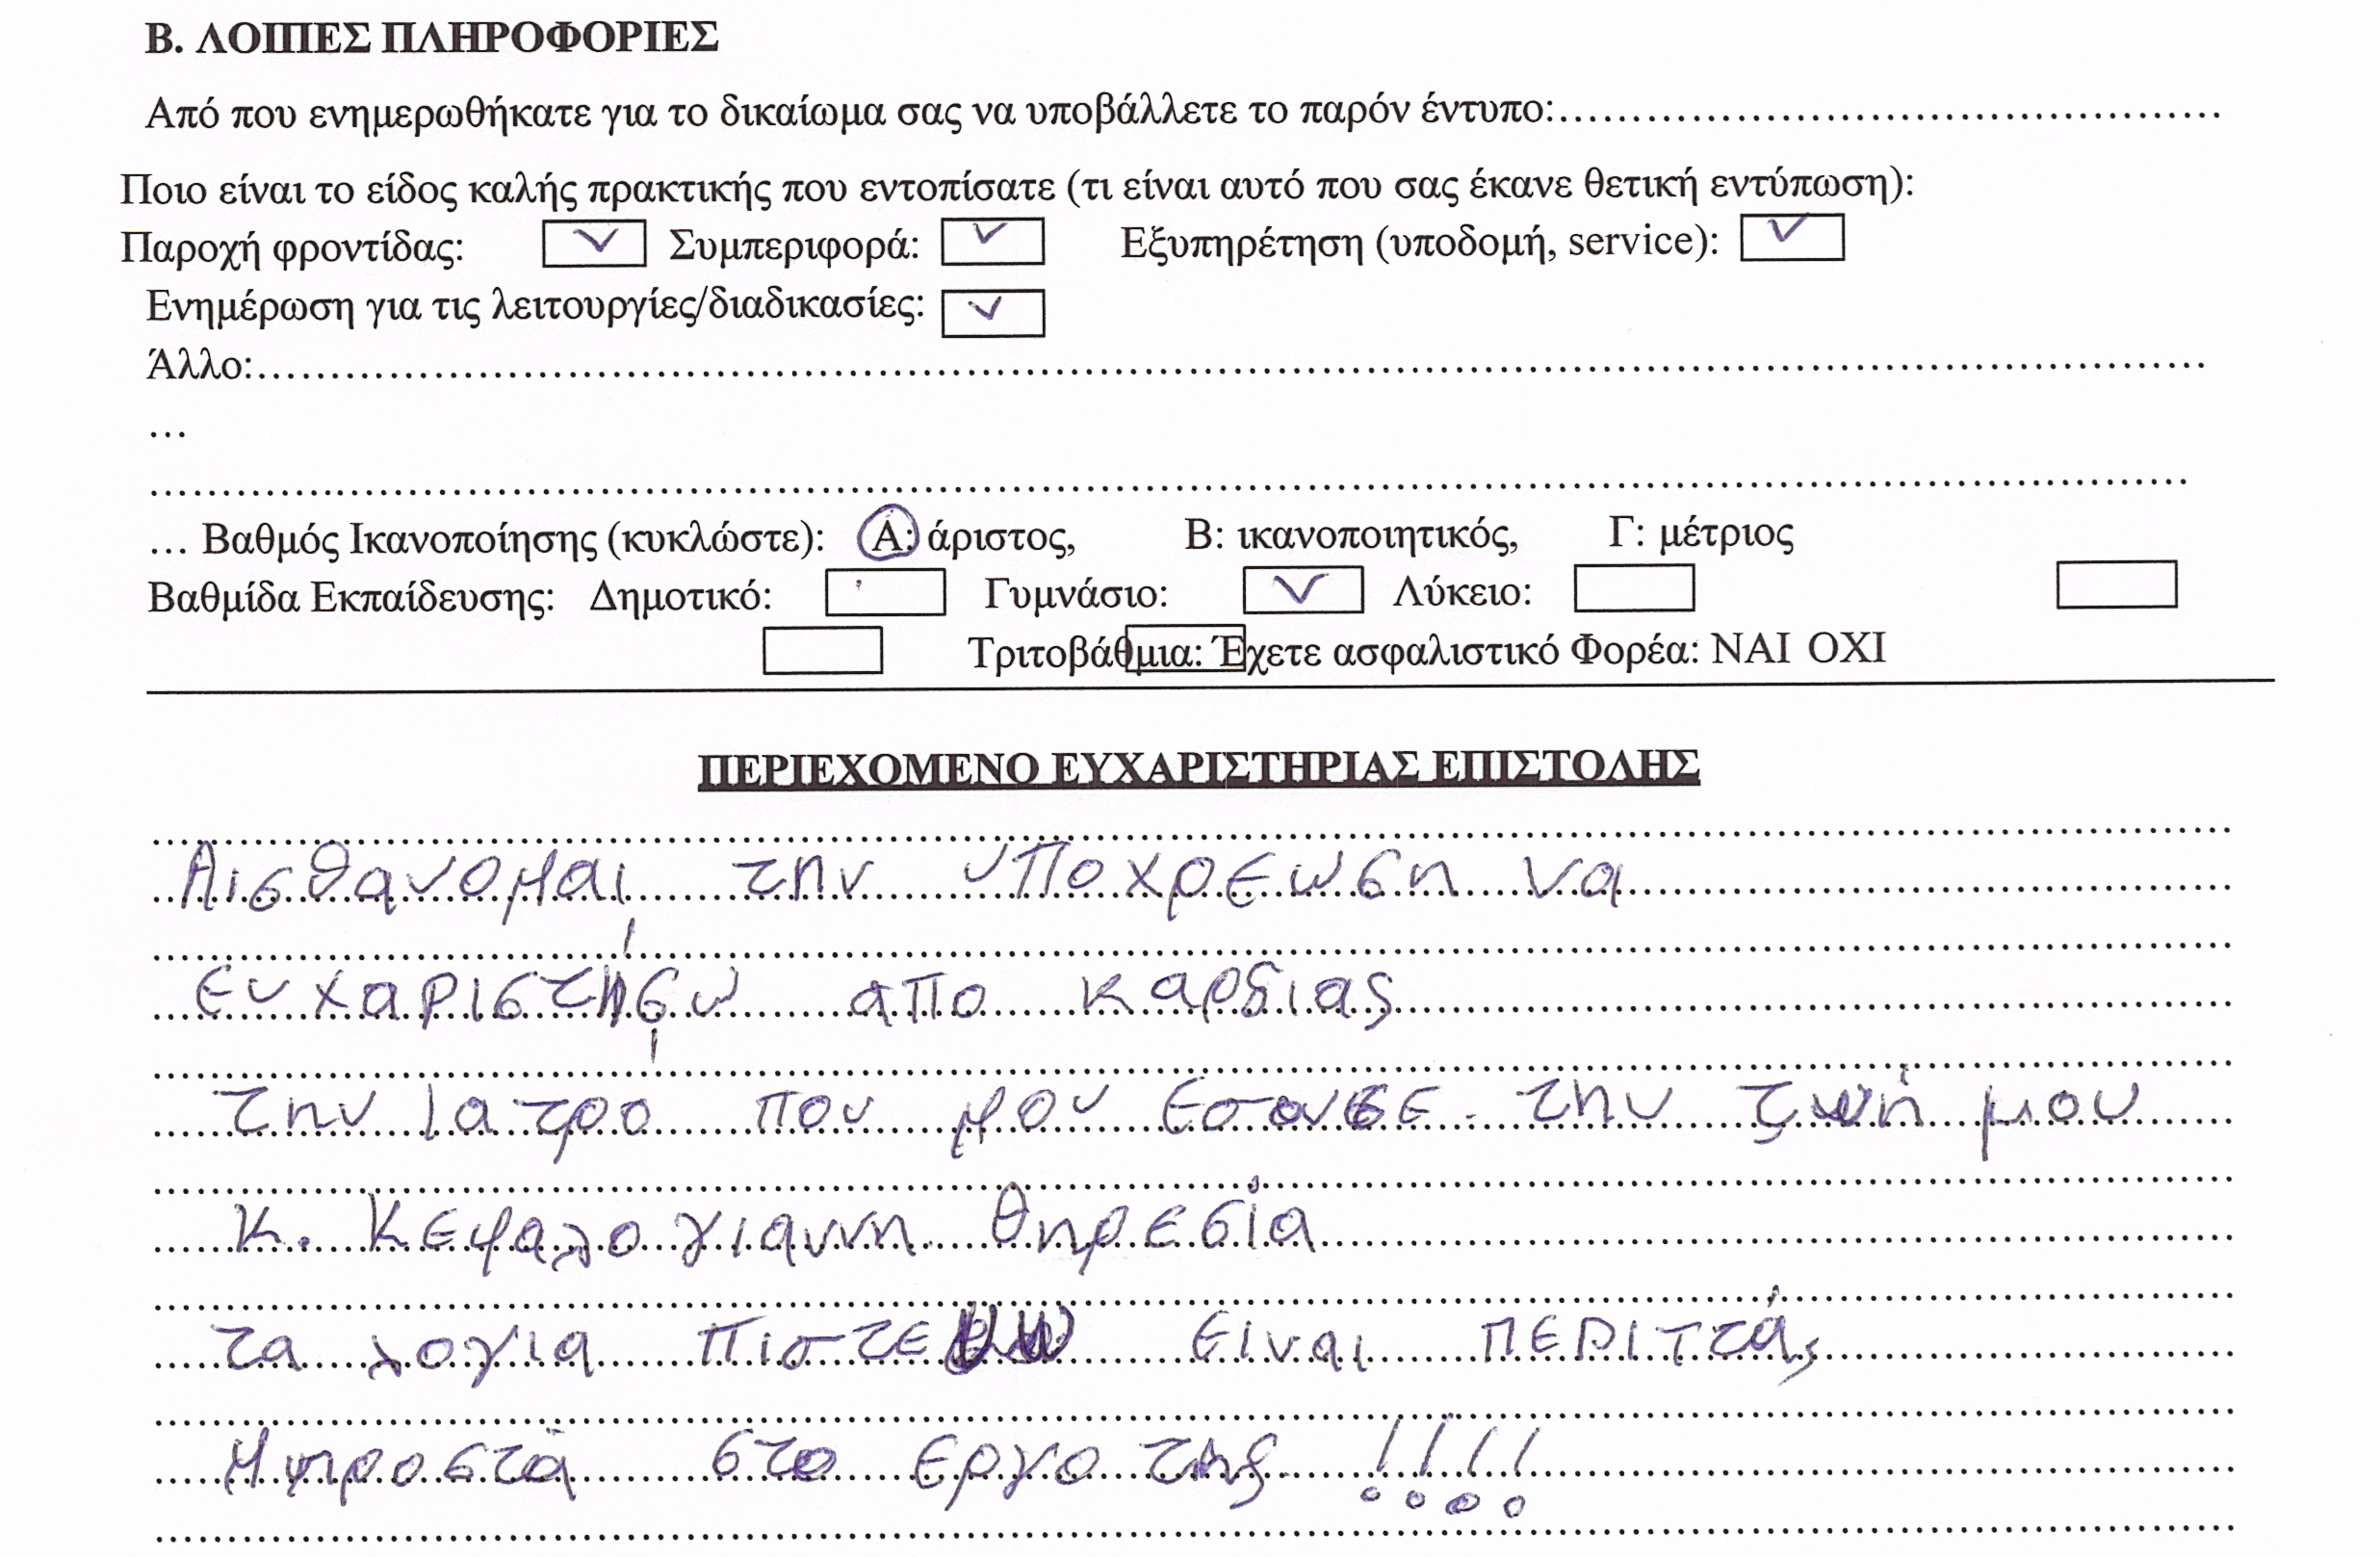 Β. ΛΟΙΠΕΣ ΠΛΗΡΟΦΟΡΙΕΣ
Από που ενημερωθήκατε για το δικαίωμα σας να υποβάλλετε το παρόν έντυπο:..............................................
Ποιο είναι το είδος καλής πρακτικής που εντοπίσατε (τι είναι αυτό που σας έκανε θετική εντύπωση):
Παροχή φροντίδας: ✓ Συμπεριφορά: ✓ Εξυπηρέτηση (υποδομή, service): ✓
Ενημέρωση για τις λειτουργίες/διαδικασίες: ✓
Άλλο:..............................................
...
..............................................
... Βαθμός Ικανοποίησης (κυκλώστε): Α: άριστος, Β: ικανοποιητικός, Γ: μέτριος
Βαθμίδα Εκπαίδευσης: Δημοτικό: Γυμνάσιο: ✓ Λύκειο:
Τριτοβάθμια: Έχετε ασφαλιστικό Φορέα: ΝΑΙ ΟΧΙ
ΠΕΡΙΕΧΟΜΕΝΟ ΕΥΧΑΡΙΣΤΗΡΙΑΣ ΕΠΙΣΤΟΛΗΣ
Αισθανομαι την υποχρεωση να
ευχαριστησω απο καρδιας
την Ιατρο που μου εσωσε την ζωή μου
κ. Κεφαλογιαννη Θηρεσία
τα λογια πιστευω ειναι περιττά,
μπροστά στο εργο της !!!!